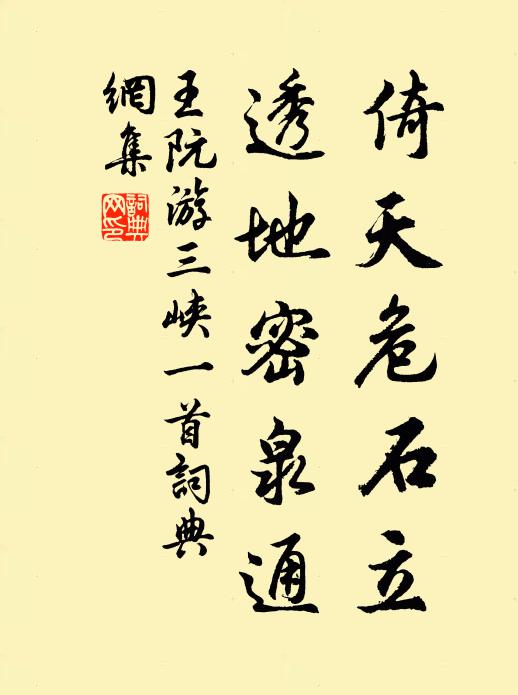 倚天危石立
透地密泉通
王阮游三峡一首詞典
網集
詞典
网印